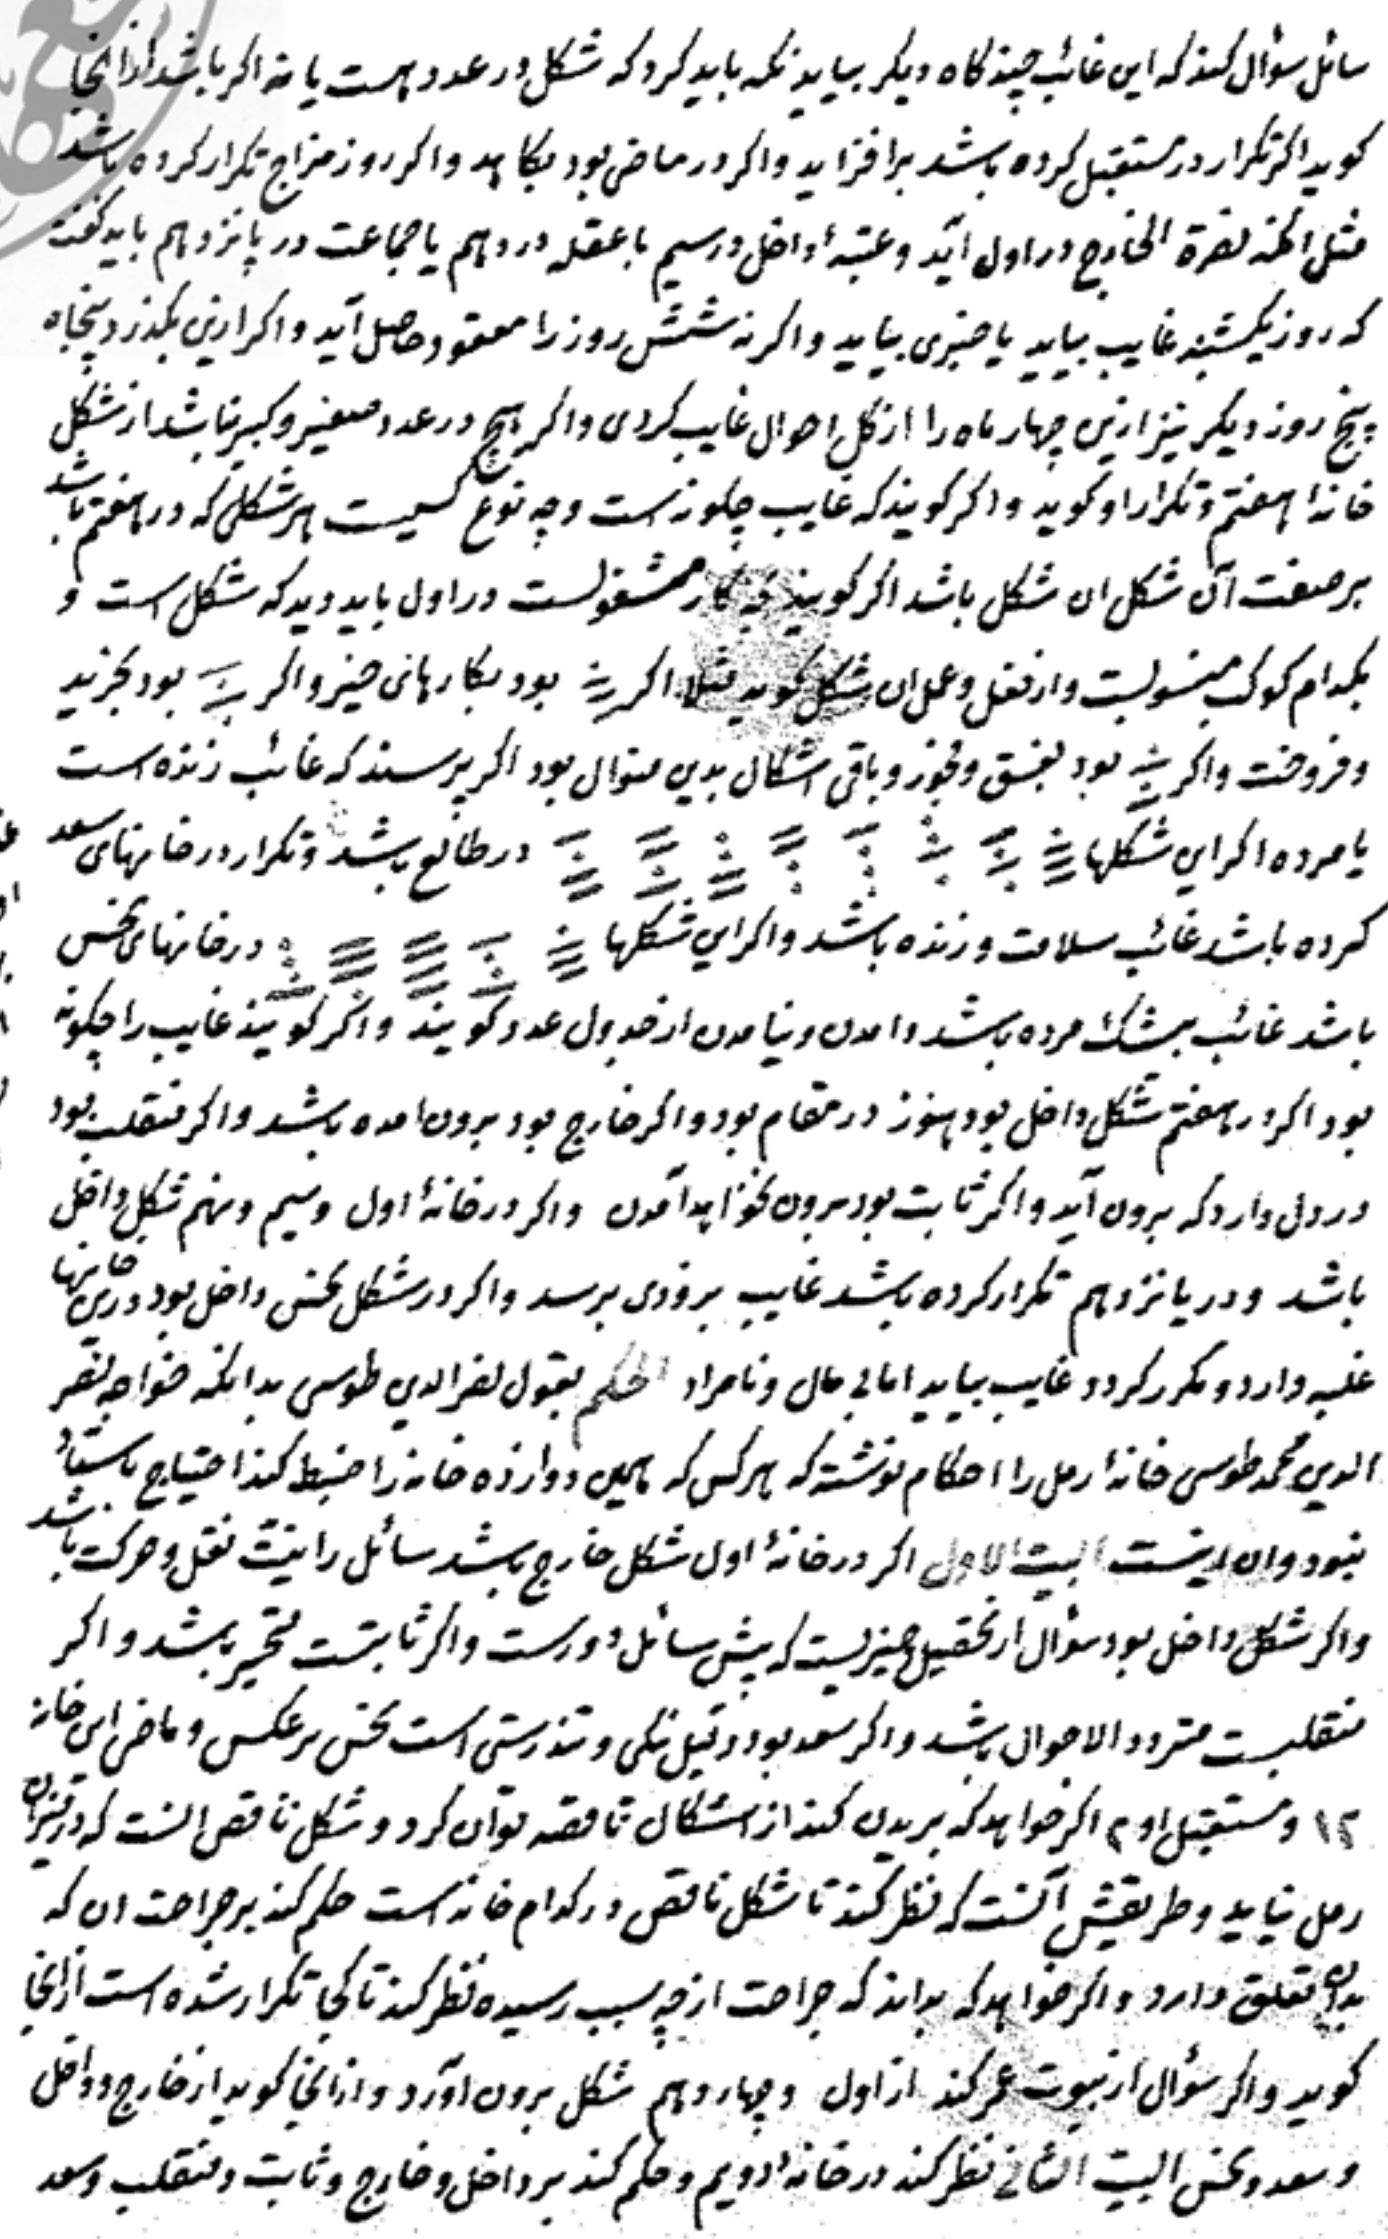 سائل سؤال کند که این غائب چند کاه دیکر بیاید نکه باید کرد که شکل در عدد هست یا نه اکر باشد از انجا
کوید اکر تکرار در مستقبل کرده باشد برافزاید و اکر در ماضی بود بکاهد و اکر روز مزاج تکرار کرده باشد
مثل انکه نصرة الخارج در اول آید و عتبهٔ داخل در سیم با عقله در دهم یا جماعت در پانزدهم باید کفت
که روز یکشنبه غایب بیاید یا خبری بیاید و اکر نه شش روز را معقود حاصل آید و اکر ازین بکذرد پنجاه
پنج روز دیکر نیز ازین چهار ماه را از کل احوال غایب کردی و اکر هیچ در عدد صغیر و کبیر نباشد از شکل
خانهٔ هفتم و تکرار او کوید و اکر کویند که غایب چکونه است و چه نوع کسیست هر شکلی که در هفتم باشد
بر صفت آن شکل ان شکل باشد اکر کویند چه کار مشغولست در اول باید دید که شکل است و
بکدام کوکب منسوبست و از فعل و عمل ان شکل کوید مثلا اکر بود بکارهای خیر و اکر بود بخرید
و فروخت و اکر بود بفسق و فجور و باقی اشکال بدین منوال بود اکر پرسند که غائب زنده است
یا مرده اکر این شکلها در طالع باشد و تکرار در خانهای سعد
کرده باشد غائب سلامت و زنده باشد و اکر این شکلها در خانهای نحس
باشد غائب بیشک مرده باشد و امدن و نیامدن از جدول عدد کویند و اکر کویند غایب را چکونه
بود اکر در هفتم شکل داخل بود هنوز در مقام بود و اکر خارج بود برون امده باشد و اکر منقلب بود
در دل دارد که برون آید و اکر ثابت بود برون نخواهد آمدن و اکر در خانهٔ اول و سیم و نهم شکل داخل
باشد و در پانزدهم تکرار کرده باشد غایب بزودی برسد و اکر در شکل نحس داخل بود درین خانها
غلبه دارد و مکرر کردد غایب بیاید اما بی مال و نامراد الحکم بقول نصر الدین طوسی بدانکه خواجه نصر
الدین محمد طوسی خانهٔ رمل را احکام نوشته که هر کس که همین دوازده خانه را ضبط کند احتیاج باستاد
نبود و ان اینست البیت الاول اکر در خانهٔ اول شکل خارج باشد سائل را نیت نقل و حرکت باشد
و اکر شکل داخل بود سؤال از تحصیل چیزیست که پیش سائل دورست و اکر ثابتست متحیر باشد و اکر
منقلبست متردد الاحوال باشد و اکر سعد بود دلیل نیکی و تندرستی است نحس برعکس و ماضی این خانه
۱۲ و مستقبل او ۲ اکر خواهد که بریدن کند از اشکال ناقصه توان کرد و شکل ناقص انست که در میزان
رمل نیاید و طریقش آنست که نظر کند تا شکل ناقص در کدام خانه است حکم کند بر جراحت ان که
بدان تعلق دارد و اکر خواهد که بداند که جراحت از چه سبب رسیده نظر کند تا کجا تکرار شده است از انجا
کوید و اکر سؤال از بیوت عمر کند از اول و چهاردهم شکل برون آورد و از انجا کوید از خارج و داخل
و سعد و نحس البیت الثانی نظر کند در خانهٔ دویم و حکم کند بر داخل و خارج و ثابت و منقلب و سعد